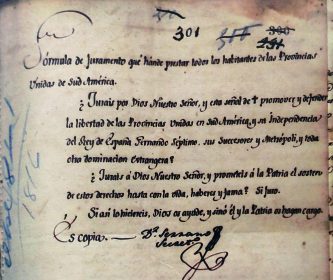 301
Fórmula de Juramento que hánde prestar todos los habitantes de las Provincias
Unidas de Sud América.
¿ Jurais por Dios Nuestro Señor, y esta señal de + promover, y defender
la libertad de las Provincias Unidas en Sud América, y su Independencia
del Rey de España Fernando Séptimo, sus Succesores y Metrópoli, y toda
otra dominacion Estrangera ?
¿ Jurais á Dios Nuestro Señor, y prometeis á la Patria el sosten
de estos derechos hasta con la vida, haberes y fama ? Si Juro.
Si así lo hiciereis, Dios os ayude, y sinó él y la Patria os hagan cargo.
Es copia.
Dr. Serrano
Secret.
1816